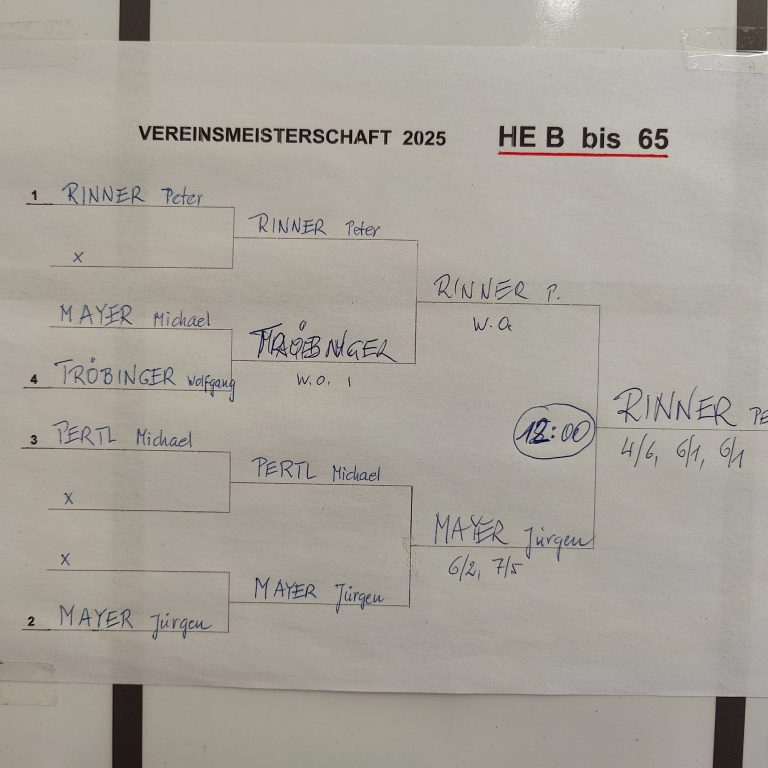 VEREINSMEISTERSCHAFT 2025 HE B bis 65
1 RINNER Peter
RINNER Peter
x
RINNER P.
W.O.
MAYER Michael
TRÖBINGER
W.O.
4 TRÖBINGER Wolfgang
RINNER PE
4/6, 6/1, 6/1
12:00
3 PERTL Michael
PERTL Michael
x
MAYER Jürgen
6/2, 7/5
x
MAYER Jürgen
2 MAYER Jürgen